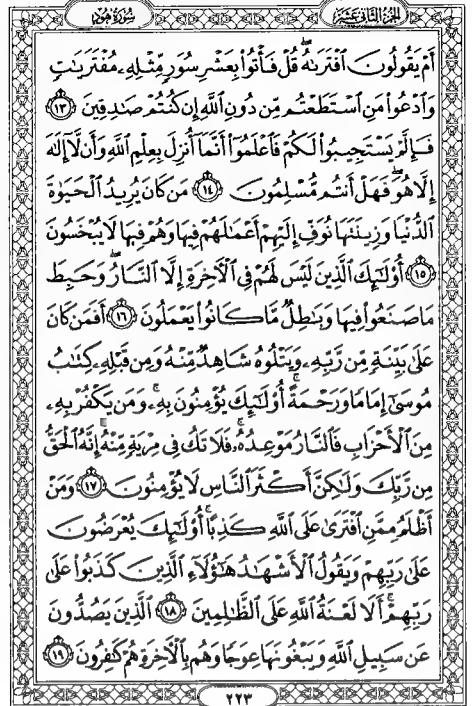 سُورَةُ هُودٍ الجُزءُ الثَّانِي عَشَرَ
أَمْ يَقُولُونَ ٱفْتَرَىٰهُۖ قُلْ فَأْتُوا۟ بِعَشْرِ سُوَرٍ مِّثْلِهِۦ مُفْتَرَيَٰتٍ
وَٱدْعُوا۟ مَنِ ٱسْتَطَعْتُم مِّن دُونِ ٱللَّهِ إِن كُنتُمْ صَٰدِقِينَ ١٣
فَإِلَّمْ يَسْتَجِيبُوا۟ لَكُمْ فَٱعْلَمُوٓا۟ أَنَّمَآ أُنزِلَ بِعِلْمِ ٱللَّهِ وَأَن لَّآ إِلَٰهَ
إِلَّا هُوَۖ فَهَلْ أَنتُم مُّسْلِمُونَ ١٤ مَن كَانَ يُرِيدُ ٱلْحَيَوٰةَ
ٱلدُّنْيَا وَزِينَتَهَا نُوَفِّ إِلَيْهِمْ أَعْمَٰلَهُمْ فِيهَا وَهُمْ فِيهَا لَا يُبْخَسُونَ
١٥ أُو۟لَٰٓئِكَ ٱلَّذِينَ لَيْسَ لَهُمْ فِى ٱلْءَاخِرَةِ إِلَّا ٱلنَّارُۖ وَحَبِطَ
مَا صَنَعُوا۟ فِيهَا وَبَٰطِلٌ مَّا كَانُوا۟ يَعْمَلُونَ ١٦ أَفَمَن كَانَ
عَلَىٰ بَيِّنَةٍ مِّن رَّبِّهِۦ وَيَتْلُوهُ شَاهِدٌ مِّنْهُ وَمِن قَبْلِهِۦ كِتَٰبُ
مُوسَىٰٓ إِمَامًا وَرَحْمَةًۚ أُو۟لَٰٓئِكَ يُؤْمِنُونَ بِهِۦۚ وَمَن يَكْفُرْ بِهِۦ
مِنَ ٱلْأَحْزَابِ فَٱلنَّارُ مَوْعِدُهُۥۚ فَلَا تَكُ فِى مِرْيَةٍ مِّنْهُۚ إِنَّهُ ٱلْحَقُّ
مِن رَّبِّكَ وَلَٰكِنَّ أَكْثَرَ ٱلنَّاسِ لَا يُؤْمِنُونَ ١٧ وَمَنْ
أَظْلَمُ مِمَّنِ ٱفْتَرَىٰ عَلَى ٱللَّهِ كَذِبًاۚ أُو۟لَٰٓئِكَ يُعْرَضُونَ
عَلَىٰ رَبِّهِمْ وَيَقُولُ ٱلْأَشْهَٰدُ هَٰٓؤُلَآءِ ٱلَّذِينَ كَذَبُوا۟ عَلَىٰ
رَبِّهِمْۚ أَلَا لَعْنَةُ ٱللَّهِ عَلَى ٱلظَّٰلِمِينَ ١٨ ٱلَّذِينَ يَصُدُّونَ
عَن سَبِيلِ ٱللَّهِ وَيَبْغُونَهَا عِوَجًا وَهُم بِٱلْءَاخِرَةِ هُمْ كَٰفِرُونَ ١٩
٢٢٣